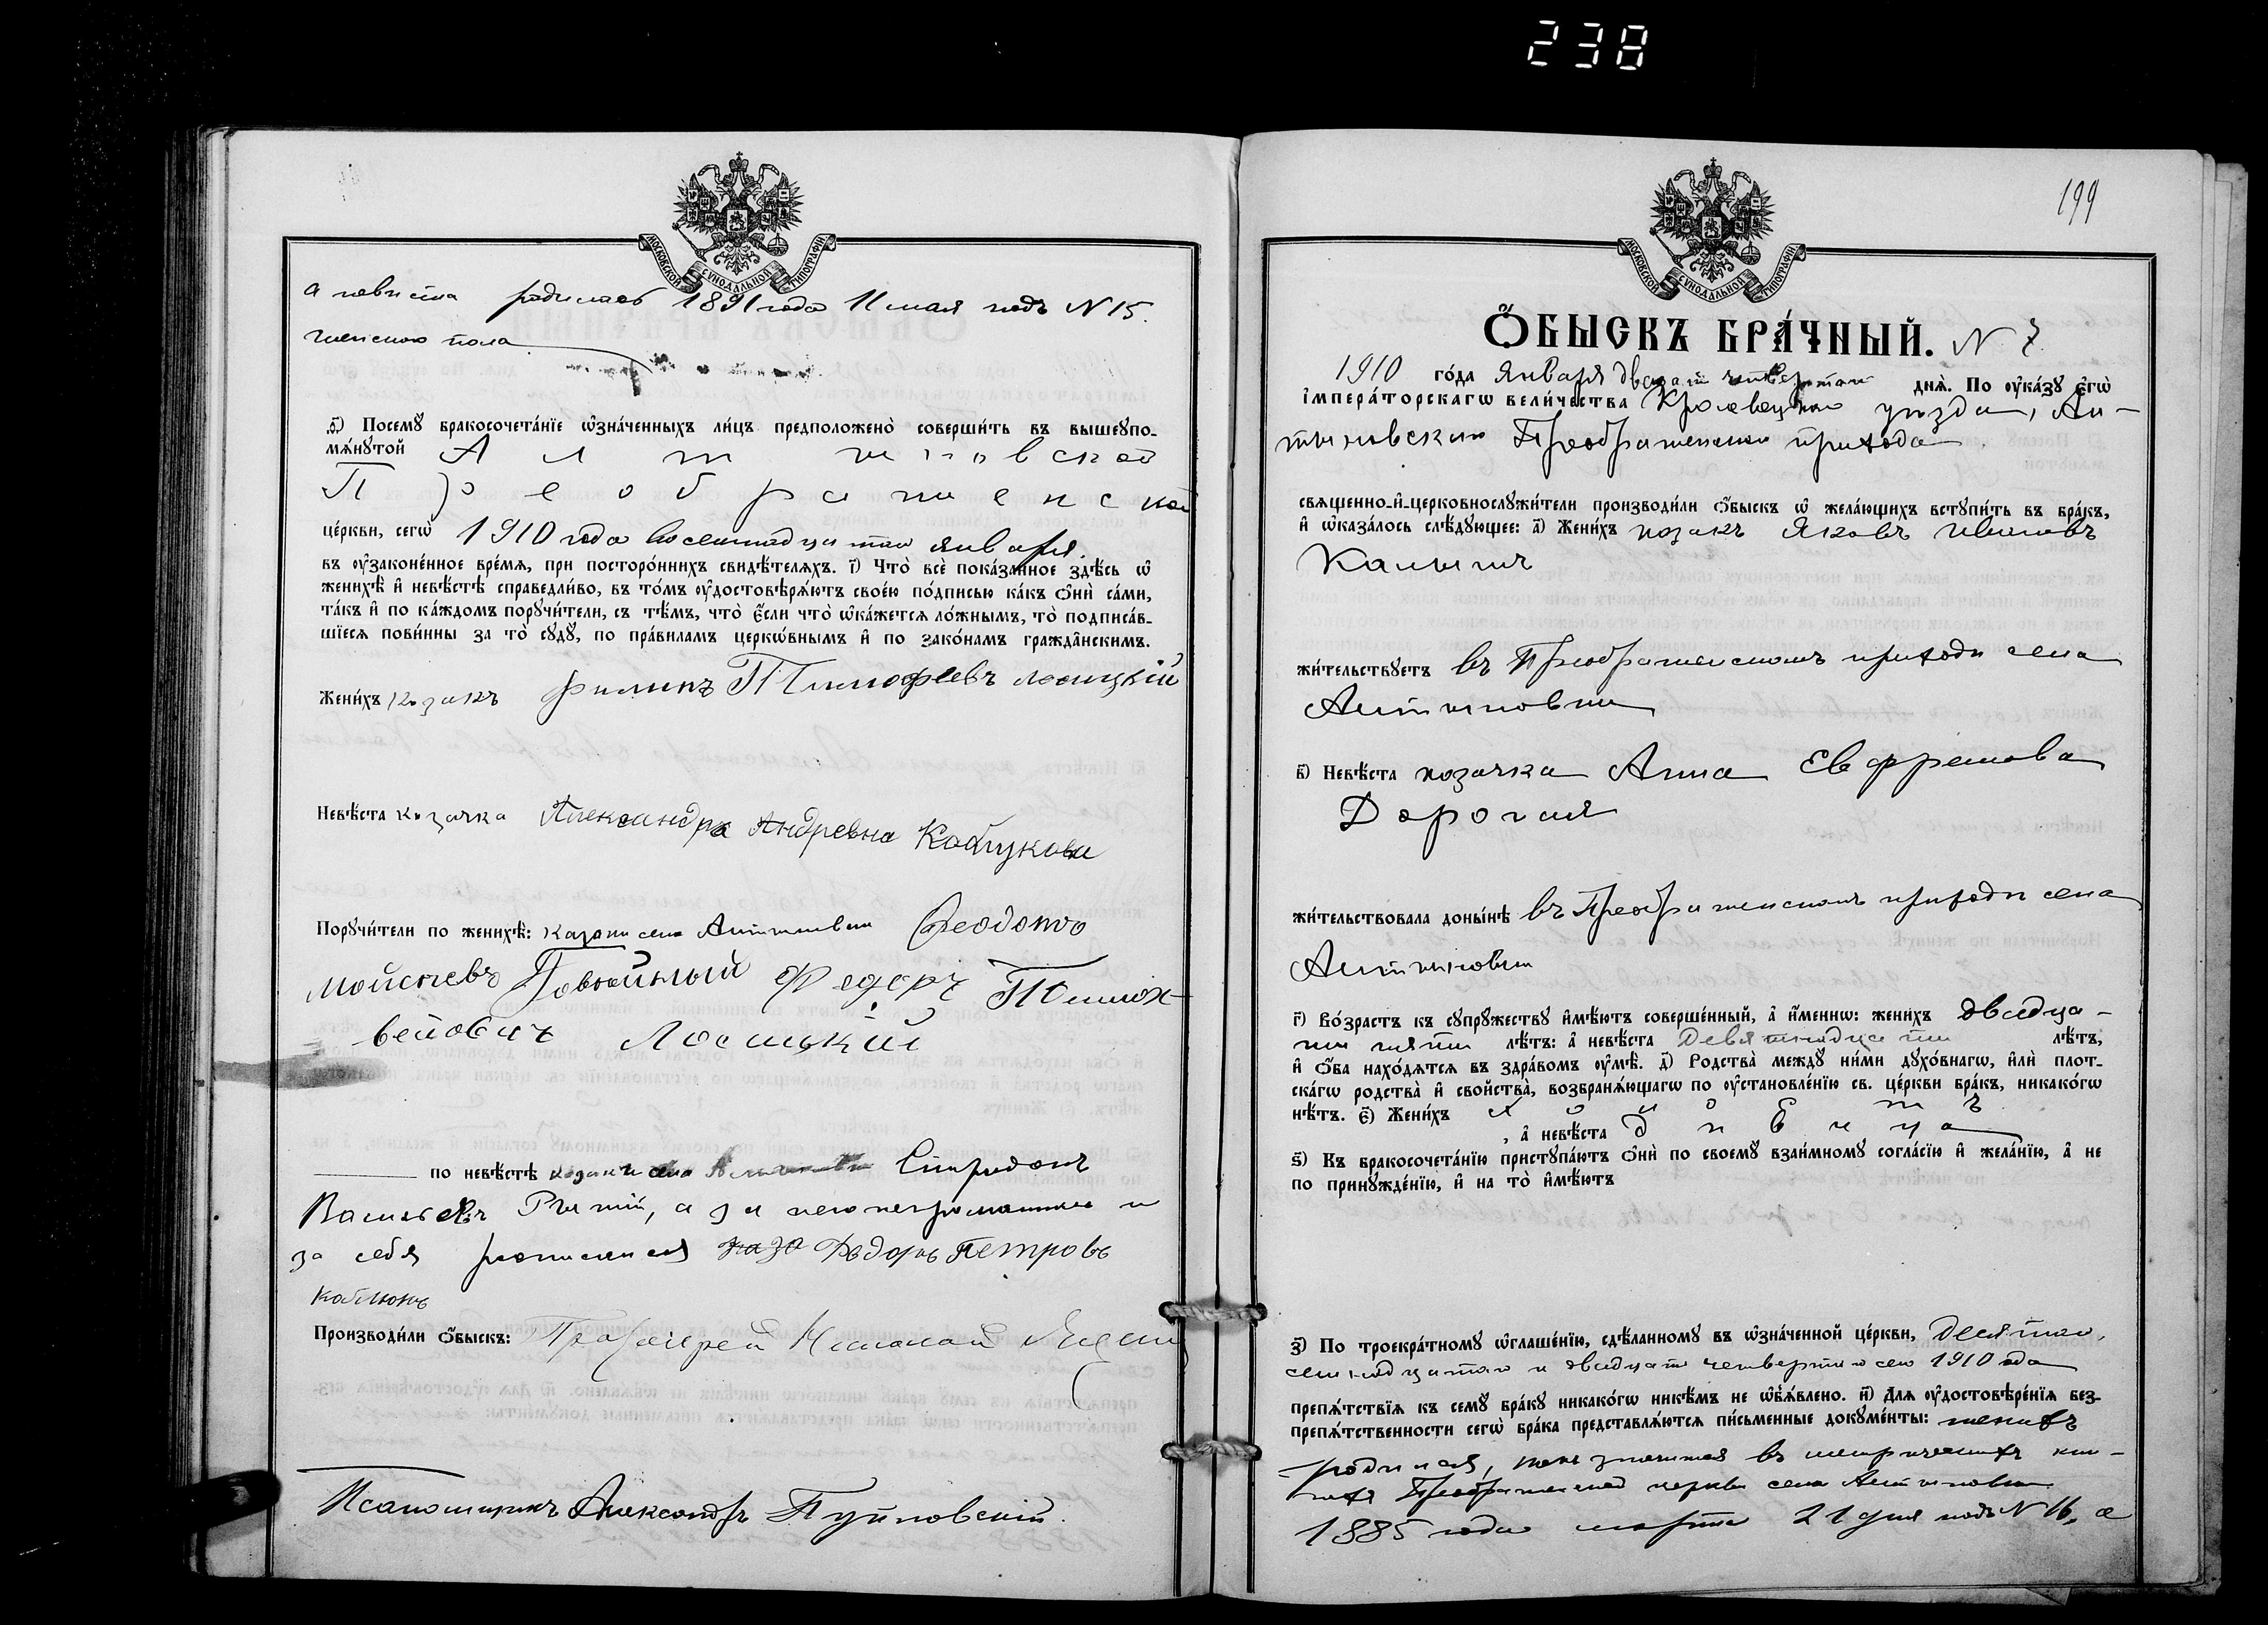 238
МОСКОВСКОЙ СѴНОДАЛЬНОЙ ТИПОГРАФІИ
а невѣста родилась 1891 года 11 мая подъ N 15.
женскаго пола
ѳ҃) Посемꙋ бракосочета́нїе ѡ҆зна́ченныхъ ли́цъ предположено̀ соверши́ть въ вышеꙋпо-
мѧ́нꙋтой Алтыновской
Преображенской
це́ркви, сегѡ̀ 1910 года восемнадцатаго января.
въ ᲂу҆законе́нное вре́мѧ, при посторо́ннихъ свидѣ́телѧхъ. і҃) Что̀ всѐ пока́занное здѣ́сь ѡ҆
женихѣ̀ и҆ невѣ́стѣ справедли́во, въ то́мъ ᲂу҆достовѣрѧ́ютъ свое́ю по́дписью ка́къ ѻ҆нѝ са́ми,
та́къ и҆ по ка́ждомъ порꙋчи́тели, съ тѣ́мъ, что̀ є҆́сли что̀ ѡ҆ка́жетсѧ ло́жнымъ, то̀ подписа́в-
шїесѧ пови́нны за то̀ сꙋдꙋ̀, по пра́виламъ церкѡ́внымъ и҆ по зако́намъ гражда̑нскимъ.
Жени́хъ козакъ Филипъ Тимофеевъ Лосицкій
Невѣ́ста козачка Александра Андревна Каблукова
Порꙋчи́тели по женихѣ̀: козаки села Алтыновки Феодотъ
Мойсеевъ Федоръ
Лосицькій
по невѣ́стѣ козаки села Спиридонъ
Васильевъ а за него неграмотнаго и
за себя росписался Федоръ Петровъ
Каблюкъ
Производи́ли ѻ҆́быскъ: Николай
Псаломщикъ Александръ
199
МОСКОВСКОЙ СѴНОДАЛЬНОЙ ТИПОГРАФІИ
Ѻ҆́БЫСКЪ БРА́ЧНЫЙ. N 7
1910 го́да Января двадцать четвертаго днѧ̀. По ᲂу҆ка́зꙋ є҆гѡ̀
і҆мпера́торскагѡ вели́чества Кролевецкаго уѣзда, Ал-
тыновскаго Преображенскаго прихода
свѧщенно-и҆-церковнослꙋжи́тели производи́ли ѻ҆́быскъ ѡ҆ жела́ющихъ встꙋпи́ть въ бра́къ,
и҆ ѡ҆каза́лось слѣ́дꙋющее: а҃) Жени́хъ козакъ Яковъ Ивановъ
жи́тельствꙋетъ въ Преображенскомъ приходѣ села
Алтыновки
в҃) Невѣ́ста козачка Анна Евфремова
Дорогая
жи́тельствовала доны́нѣ въ Преображенскомъ приходѣ села
Алтыновки
г҃) Во́зрастъ къ сꙋпрꙋ́жествꙋ и҆мѣ́ютъ соверше́нный, а҆ и҆́меннѡ: жени́хъ двадца-
ти пяти лѣ́тъ: а҆ невѣ́ста девятнадцати лѣ́тъ,
и҆ ѻ҆́ба нахо́дѧтсѧ въ здра́вомъ ᲂу҆мѣ̀. д҃) Родства̀ междꙋ̀ ни́ми дꙋхо́внагѡ, и҆лѝ плот-
ска́гѡ родства̀ и҆ сво́йства, возбранѧ́ющагѡ по ᲂу҆становле́нїю св. це́ркви бра́къ, никако́гѡ
нѣ́тъ. є҃) Жени́хъ холостъ
, а҆ невѣ́ста дѣвица
ѕ҃) Къ бракосочета́нїю пристꙋпа́ютъ ѻ҆нѝ по своемꙋ̀ взаи́мномꙋ согла́сїю и҆ жела́нїю, а҆ не
по принꙋжде́нїю, и҆ на то̀ и҆мѣ́ютъ
з҃) По троекра́тномꙋ ѡ҆глаше́нїю, сдѣ́ланномꙋ въ ѡ҆зна́ченной це́ркви, десятаго,
семнадцатаго и двадцать четвертаго сего 1910 года
препѧ́тствїѧ къ семꙋ̀ бра́кꙋ никако́гѡ никѣ́мъ не ѡ҆б̾ѧ́влено. и҃) Длѧ ᲂу҆достовѣре́нїѧ без-
препѧ́тственности сегѡ̀ бра́ка представлѧ́ютсѧ пи́сьменные докꙋме́нты: женихъ
родился, какъ значится въ метрическихъ кни-
гахъ Преображенской церкви села Алтыновки
1885 года марта 21 дня подъ N 16, а